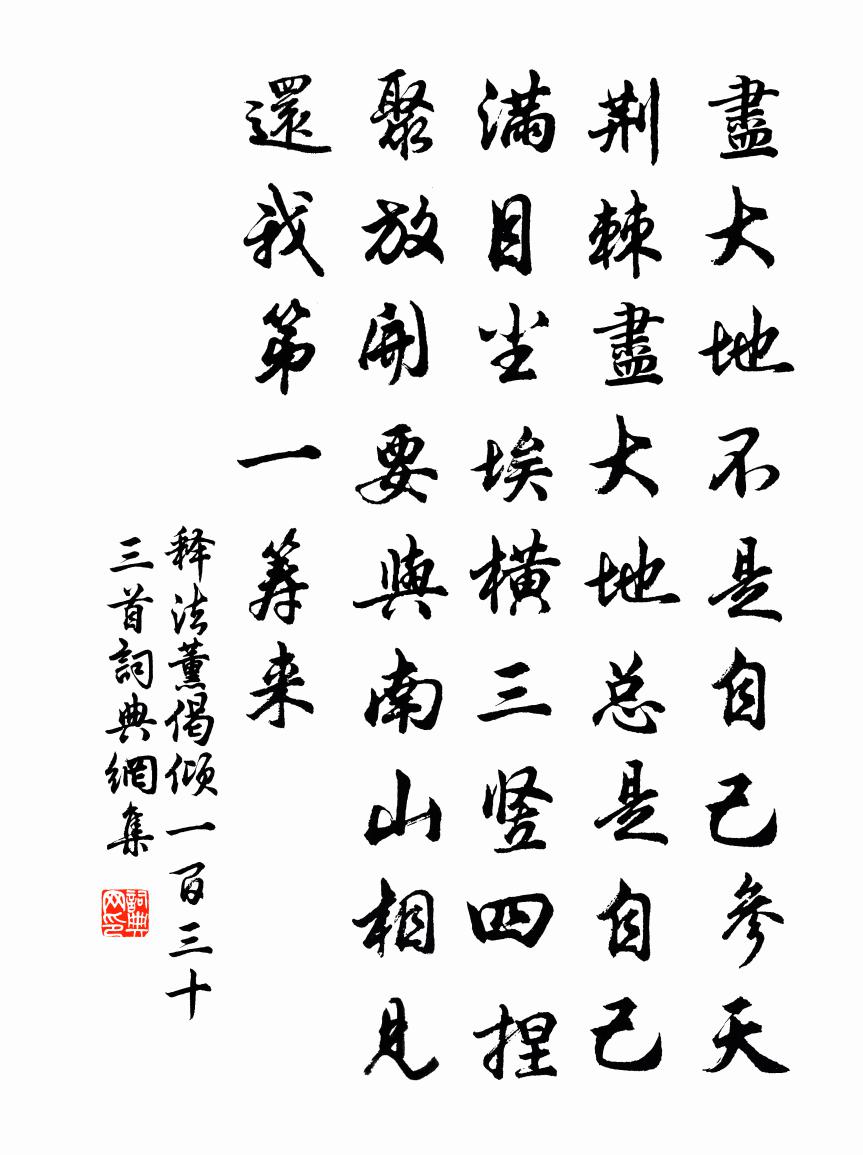 盡大地不是自己參天
荆棘盡大地总是自己
滿目尘埃橫三竖四捏
聚放開要與南山相見
還我第一筹来
释法薰偈傾一百三十
三首詞典網集
詞典
网印